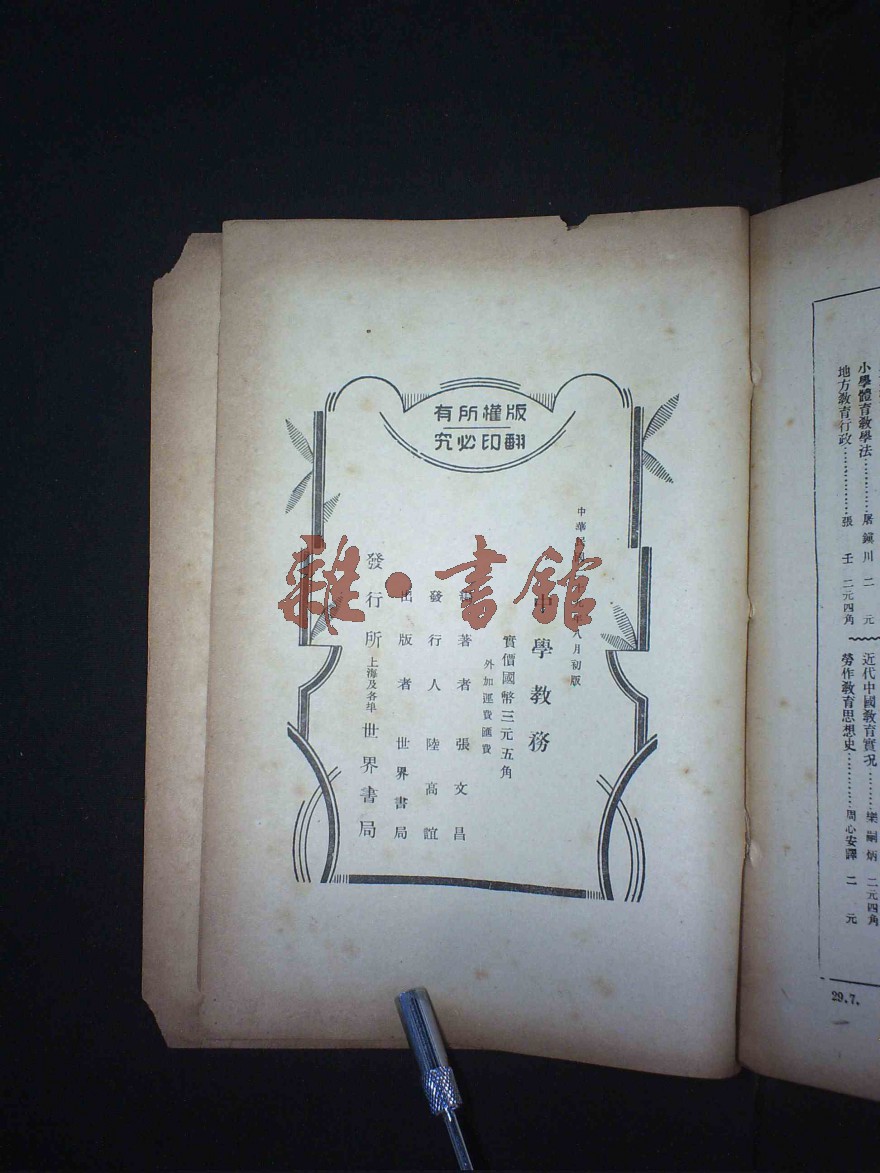 版權所有
翻印必究
中華民國年八月初版
中學教務
實價國幣三元五角
外加運費匯費
著者 張文昌
發行人 陸高誼
出版者 世界書局
發行所 上海及各埠 世界書局
雜·書館
小學體育教學法……屠鎮川 二元
地方教育行政……張壬 二元四角
近代中國教育實况……欒嗣炳 二元四角
勞作教育思想史……周心安譯 二元
29.7.